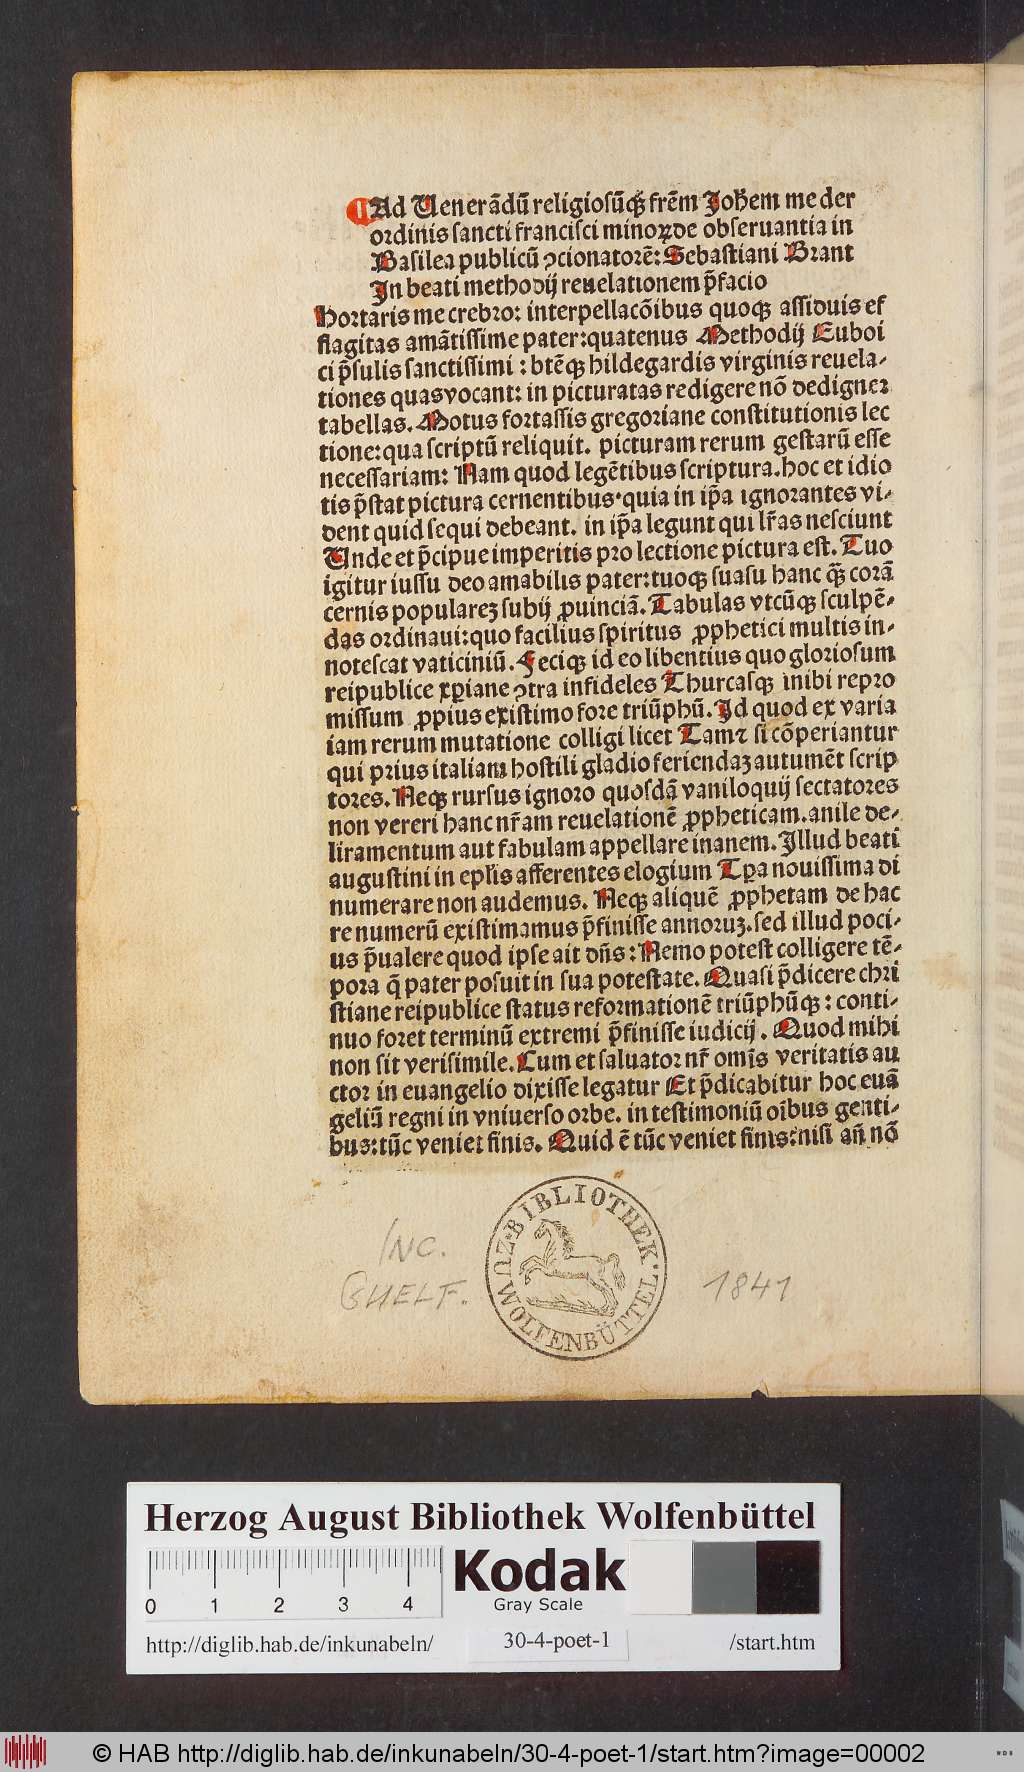 ¶Ad Venerādū religiosūqꝫ frēm Johēm me der
ordinis sancti francisci minoꝝ de obseruantia in
Basilea publicū ↄcionatorē: Sebastiani Brant
In beati methodij reuelationem p̄facio
Hortaris me crebro: interpellacōibus quoqꝫ assiduis ef
flagitas amātissime pater: quatenus Methodij Euboi
ci p̄sulis sanctissimi : btēqꝫ hildegardis virginis reuela⸗
tiones quas vocant: in picturatas redigere nō dedigner
tabellas. Motus fortassis gregoriane constitutionis lec
tione: qua scriptū reliquit. picturam rerum gestarū esse
necessariam: Nam quod legētibus scriptura. hoc et idio
tis p̄stat pictura cernentibus· quia in ip̄a ignorantes vi⸗
dent quid sequi debeant. in ip̄a legunt qui lr̄as nesciunt
Unde et p̄cipue imperitis pro lectione pictura est. Tuo
igitur iussu deo amabilis pater: tuoqꝫ suasu hanc qꝫ̄ corā
cernis populareꝫ subij ꝓuinciā. Tabulas vtcūqꝫ sculpē⸗
das ordinaui: quo facilius spiritus ꝓphetici multis in⸗
notescat vaticiniū. Feciqꝫ id eo libentius quo gloriosum
reipublice xp̄iane ↄtra infideles Thurcasqꝫ inibi repro
missum ꝓpius existimo fore triūphū. Id quod ex varia
iam rerum mutatione colligi licet Tamꝫ si cōperiantur
qui prius italiam hostili gladio feriendaꝫ autumēt scrip
tores. Neqꝫ rursus ignoro quosdā vaniloquij sectatores
non vereri hanc nr̄am reuelationē ꝓpheticam. anile de⸗
liramentum aut fabulam appellare inanem. Illud beati
augustini in epl̄is afferentes elogium Tp̄a nouissima di
numerare non audemus. Neqꝫ aliquē ꝓphetam de hac
re numerū existimamus p̄finisse annoruꝫ. sed illud poci⸗
us p̄ualere quod ipse ait dn̄s: Nemo potest colligere tē⸗
pora q̄ pater posuit in sua potestate. Quasi p̄dicere chri
stiane reipublice status reformationē triūphūqꝫ : conti⸗
nuo foret terminū extremi p̄finisse iudicij. Quod mihi
non sit verisimile. Cum et saluator nr̄ omīs veritatis au
ctor in euangelio dixisse legatur Et p̄dicabitur hoc euā
geliū regni in vniuerso orbe. in testimoniū oībus genti⸗
bus: tūc veniet finis. Quid ē tūc veniet finis: nisi añ nō
INC.
GUELF.
1841
BIBLIOTHEK· ZU WOLFENBÜTTEL·
Herzog August Bibliothek Wolfenbüttel
0 1 2 3 4
Kodak
Gray Scale
http://diglib.hab.de/inkunabeln/ 30-4-poet-1 /start.htm
© HAB http://diglib.hab.de/inkunabeln/30-4-poet-1/start.htm?image=00002